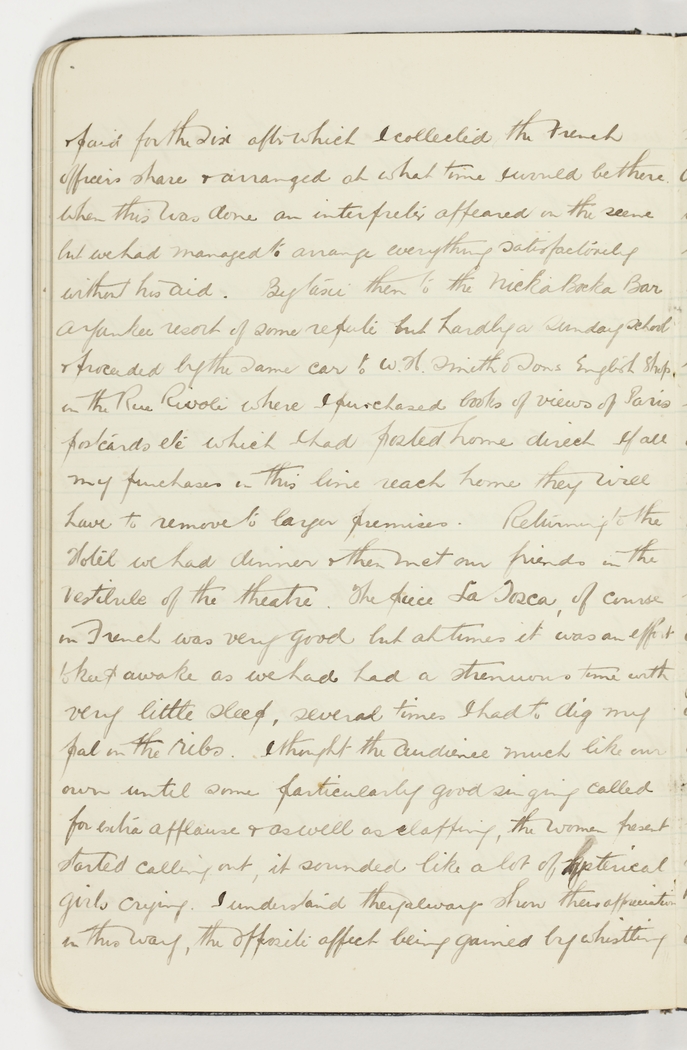 & paid for the six after which I collected the French
officers share & arranged at what time I would be there.
When this was done an interpreter appeared on the scene
but we had managed to arrange everything satisfactorily
without his aid. By taxi then to the Nicka Bocka Bar
a Yankee resort of some repute but hardly a Sunday school
& proceeded by the same car to W. H. Smith & Sons English Shop,
in the Rue Rivoli where I purchased books of views of Paris
postcards etc which I had posted home direct if all
my purchases in this line reach home they will
have to remove to larger premises. Returning to the
Hotel we had dinner & then met our friends in the
vestibule of the theatre. The piece La Tosca, of course
in French was very good but at times it was an effort
to keep awake as we had had a strenuous time with
very little sleep, several times I had to dig my
pal in the ribs. I thought the audience much like our
own until some particularly good singing called
for extra applause & as well as clapping, the women present
started calling out, it sounded like a lot of hysterical
girls crying. I understand they always show their appreciation
in this way, the opposite affect being gained by whistling